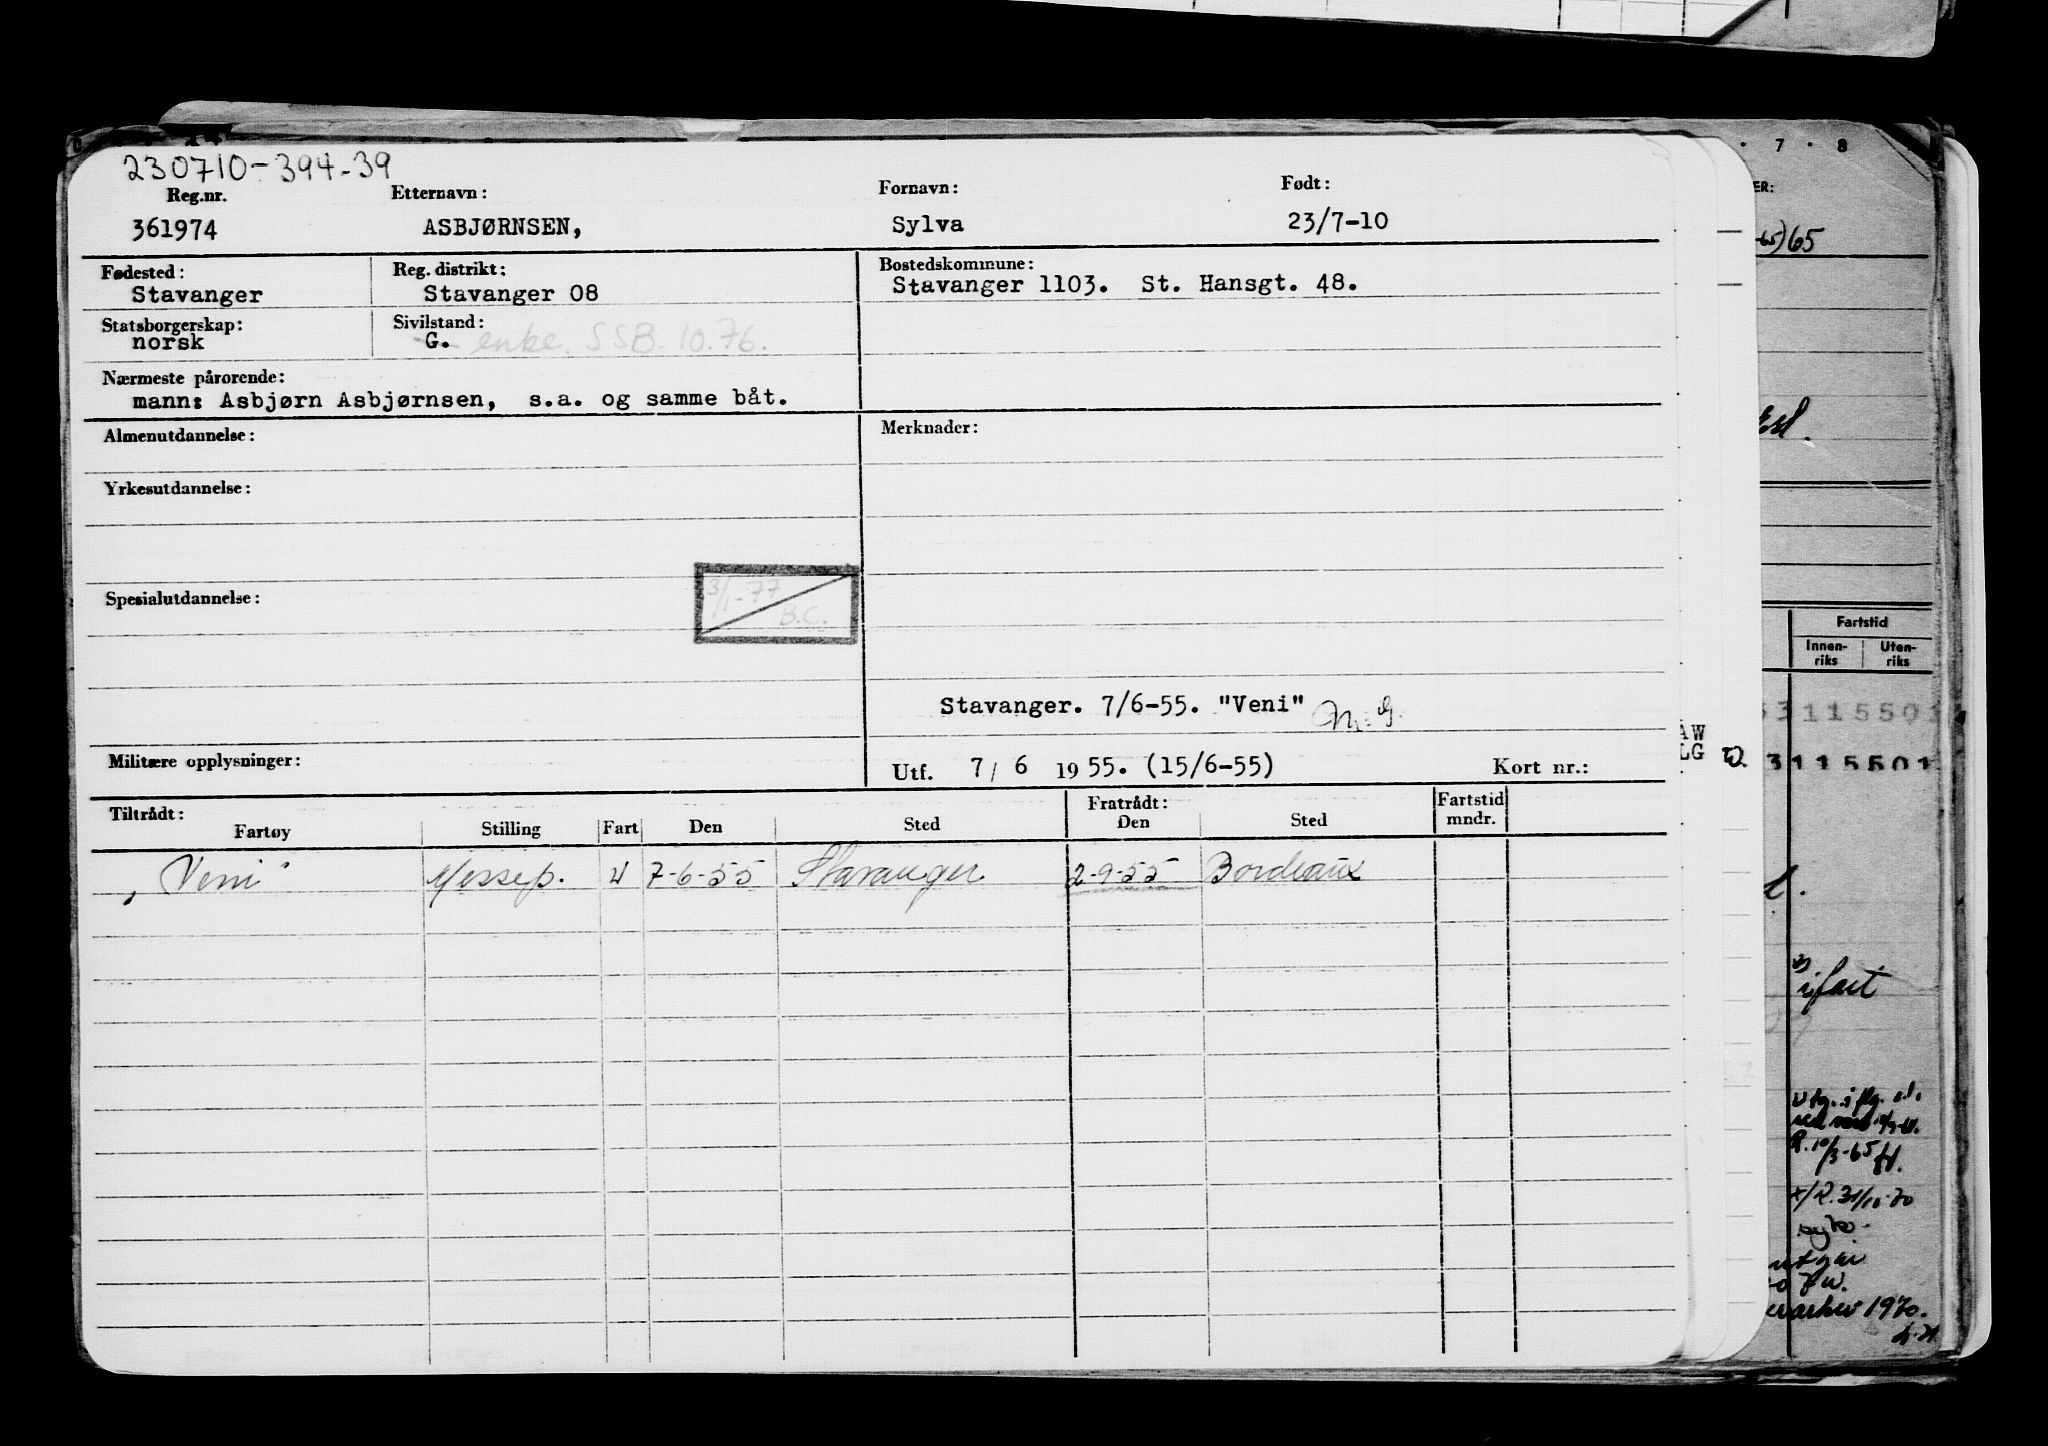 230710-394-39
Reg.nr. Etternavn: Fornavn: Født:
361974 ASBJØRNSEN, Sylva 23/7-10
Fødested: Reg. distrikt: Bostedskommune:
Stavanger Stavanger 08 Stavanger 1103. St. Hansgt. 48.
Statsborgerskap: Sivilstand:
norsk G. enke. SSB. 10.76.
Nærmeste pårørende:
mann: Asbjørn Asbjørnsen, s.a. og samme båt.
Almenutdannelse: Merknader:
Yrkesutdannelse:
3/1-77
Spesialutdannelse: B.C.
Stavanger. 7/6-55. "Veni"
Militære opplysninger: Utf. 7/6 1955. (15/6-55) Kort nr.:
Tiltrådt: Fratrådt: Fartstid
Fartøy Stilling Fart Den Sted Den Sted mndr.
"Veni" Messep. U 7-6-55 Stavanger 2-9-55 Bordeaux
7 8
ER:
65)65
Fartstid
Innen-riks Uten-riks
3115501
AW
LG
3115501
i fart
R. 10/3-65
1970.